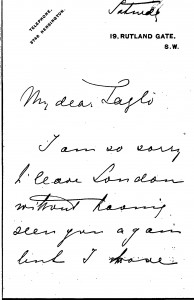 Saturday
TELEPHONE,
3786 KENSINGTON.
19, RUTLAND GATE.
S.W.
My dear
I am so sorry
to leave London
without having
seen you again
but I have